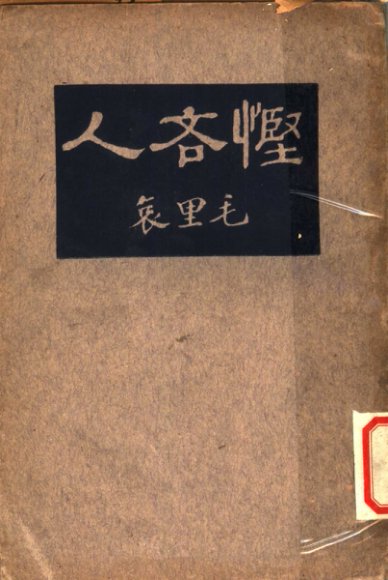 慳吝人
毛里哀